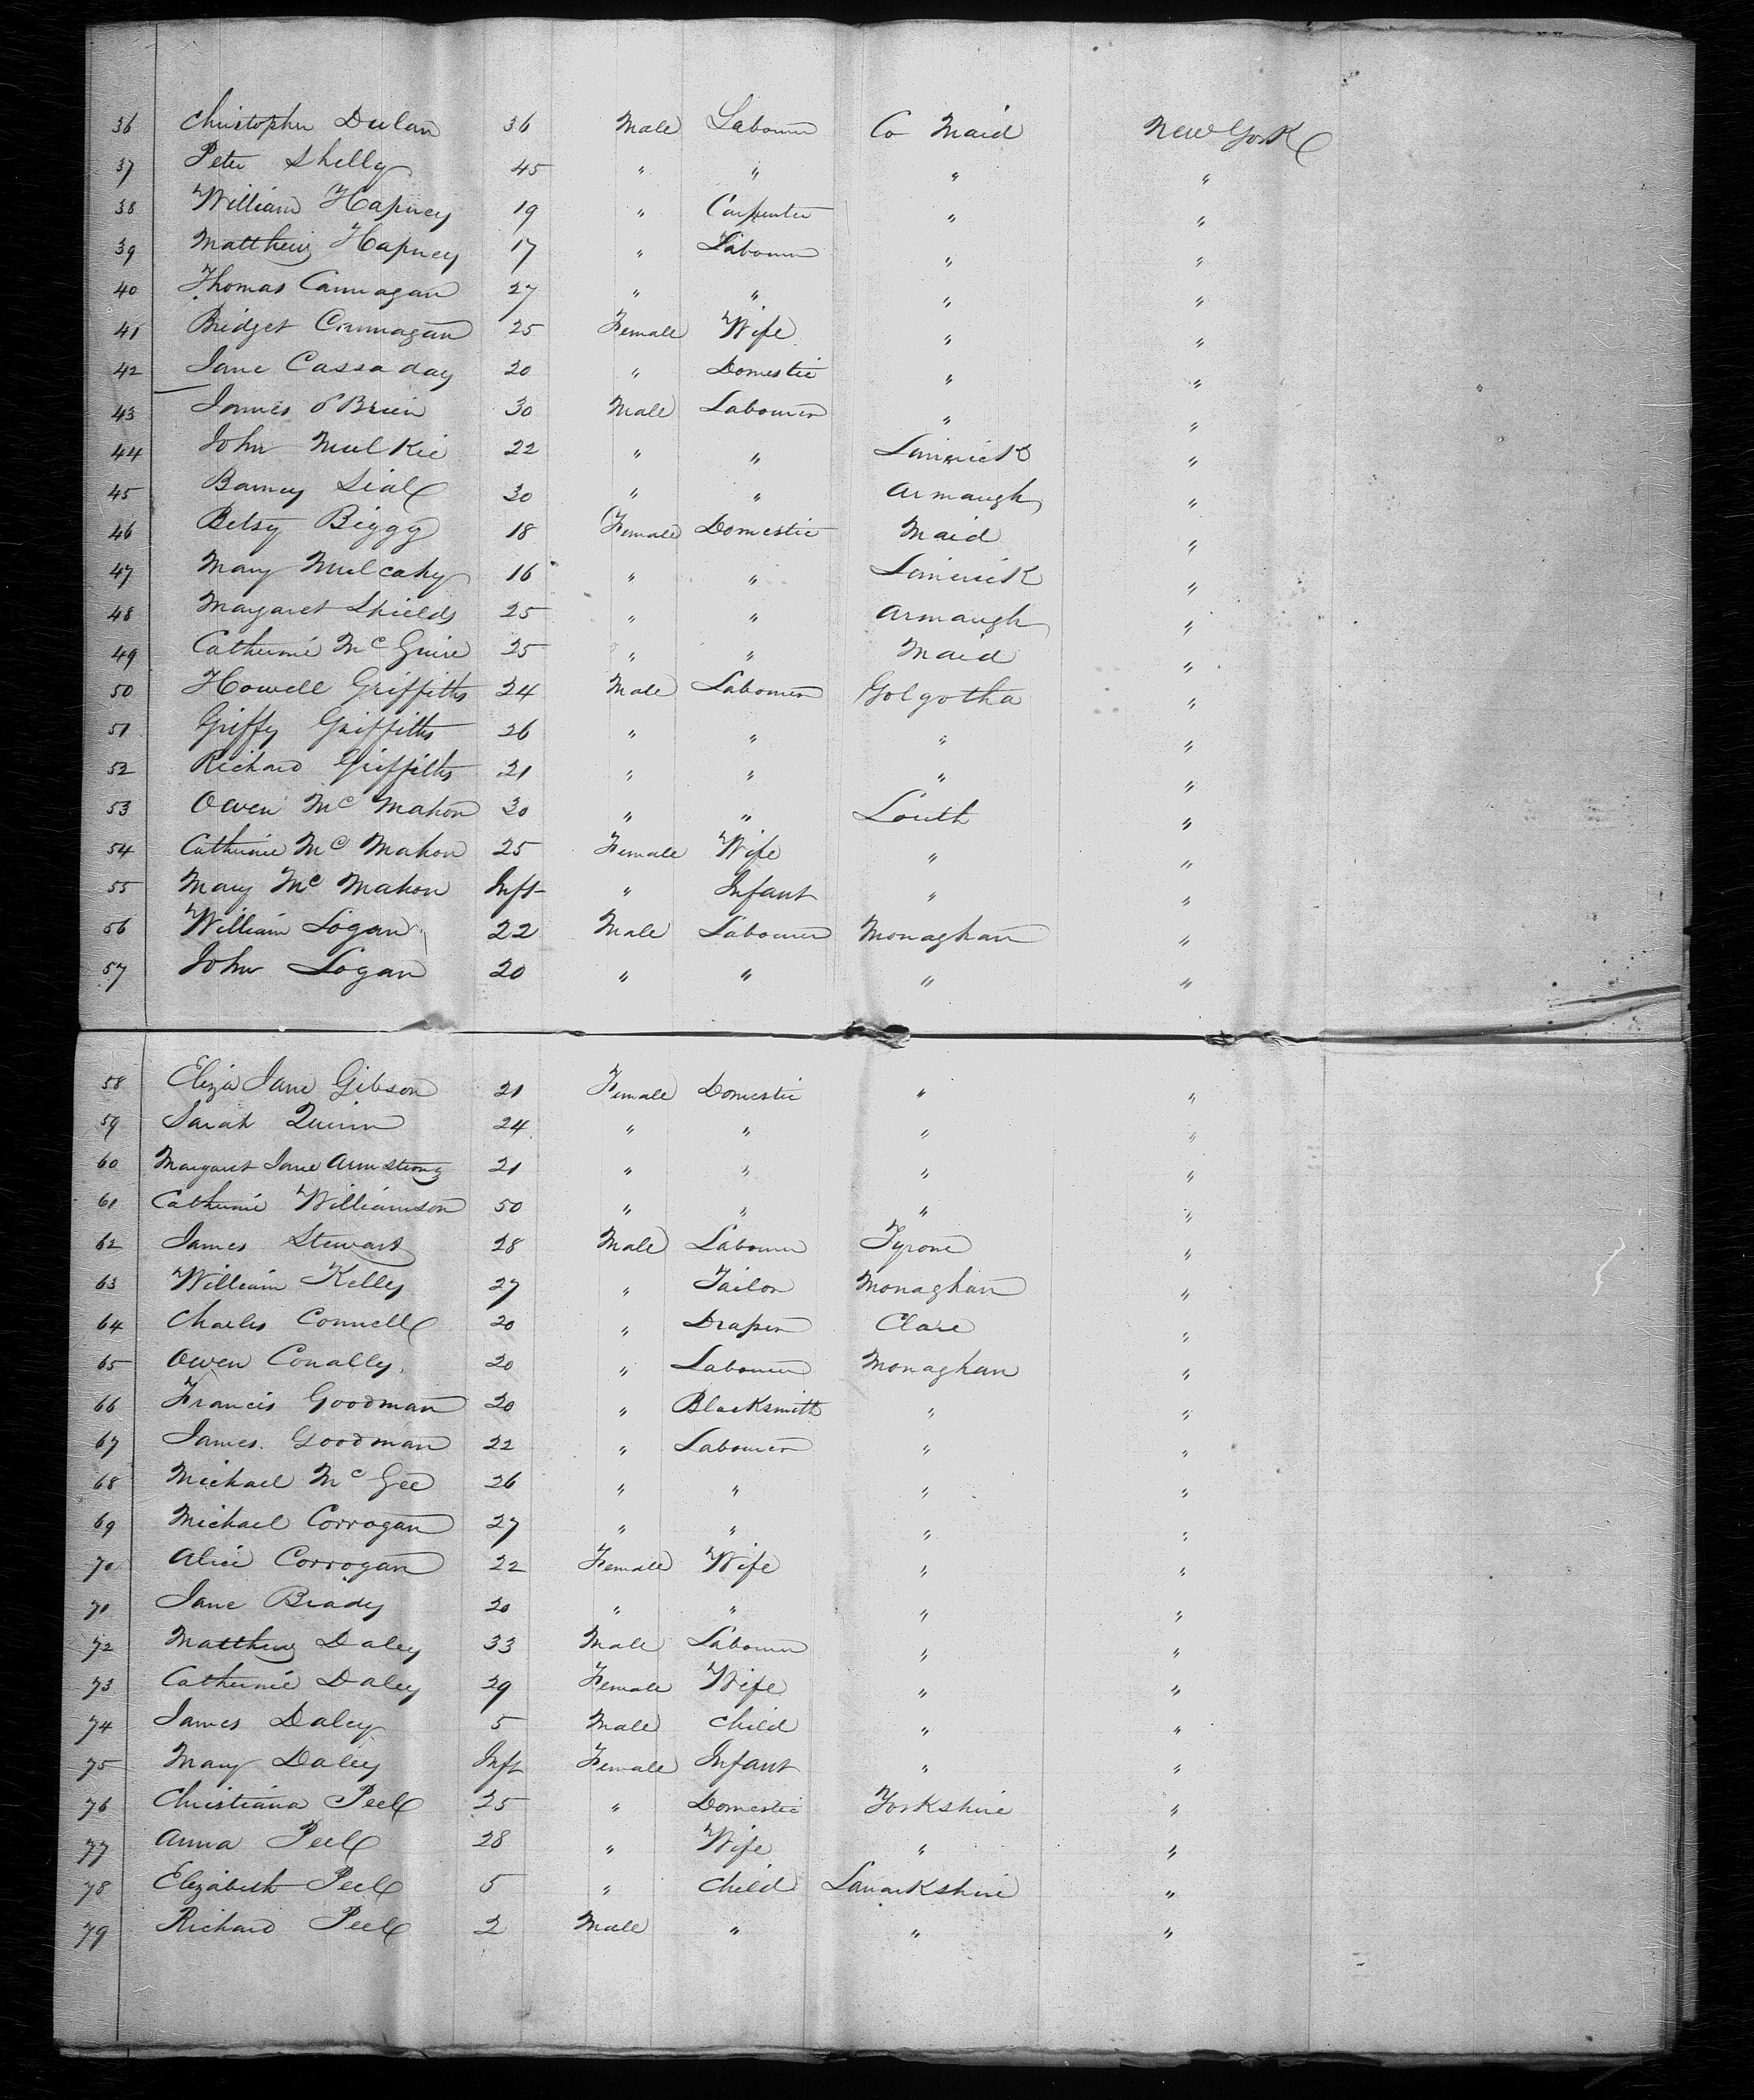 36 Christopher Dulan 36 Male Labourer Co Maid New York
37 Peter Shelly 45 " " " "
38 William Hapney 19 " Carpenter " "
39 Matthew Hapney 17 " Labourer " "
40 Thomas Cannagan 27 " " " "
41 Bridget Cannagan 25 Female Wife " "
42 Jane Cassaday 20 " Domestic " "
43 James O'Brien 30 Male Labourer " "
44 John Mulkie 22 " " Limerick "
45 Barney Sial 30 " " Armaugh "
46 Betsy Biggy 18 Female Domestic Maid "
47 Mary Mulcahy 16 " " Limerick "
48 Margaret Shields 25 " " Armaugh "
49 Catherine McGuire 25 " " Maid "
50 Howell Griffiths 24 Male Labourer Golgotha "
51 Griffy Griffiths 26 " " " "
52 Richard Griffiths 21 " " " "
53 Owen McMahon 30 " " Louth "
54 Catherine McMahon 25 Female Wife " "
55 Mary McMahon Inft " Infant " "
56 William Logan 22 Male Labourer Monaghan "
57 John Logan 20 " " " "
58 Eliza Jane Gibson 21 Female Domestic " "
59 Sarah Quinn 24 " " " "
60 Margaret Jane Armstrong 21 " " " "
61 Catherine Williamson 50 " " " "
62 James Stewart 28 Male Labourer Tyrone "
63 William Kelly 27 " Tailor Monaghan "
64 Charles Connell 20 " Draper Clare "
65 Owen Conally 20 " Labourer Monaghan "
66 Francis Goodman 20 " Blacksmith " "
67 James Goodman 22 " Labourer " "
68 Michael McGee 26 " " " "
69 Michael Corrogan 27 " " " "
70 Alice Corrogan 22 Female Wife " "
71 Jane Brady 20 " " " "
72 Matthew Daley 33 Male Labourer " "
73 Catherine Daley 29 Female Wife " "
74 James Daley 5 Male Child " "
75 Mary Daley Inft Female Infant " "
76 Christiana Peel 25 " Domestic Yorkshire "
77 Anna Peel 28 " Wife " "
78 Elizabeth Peel 5 " Child Lanarkshire "
79 Richard Peel 2 Male " " "